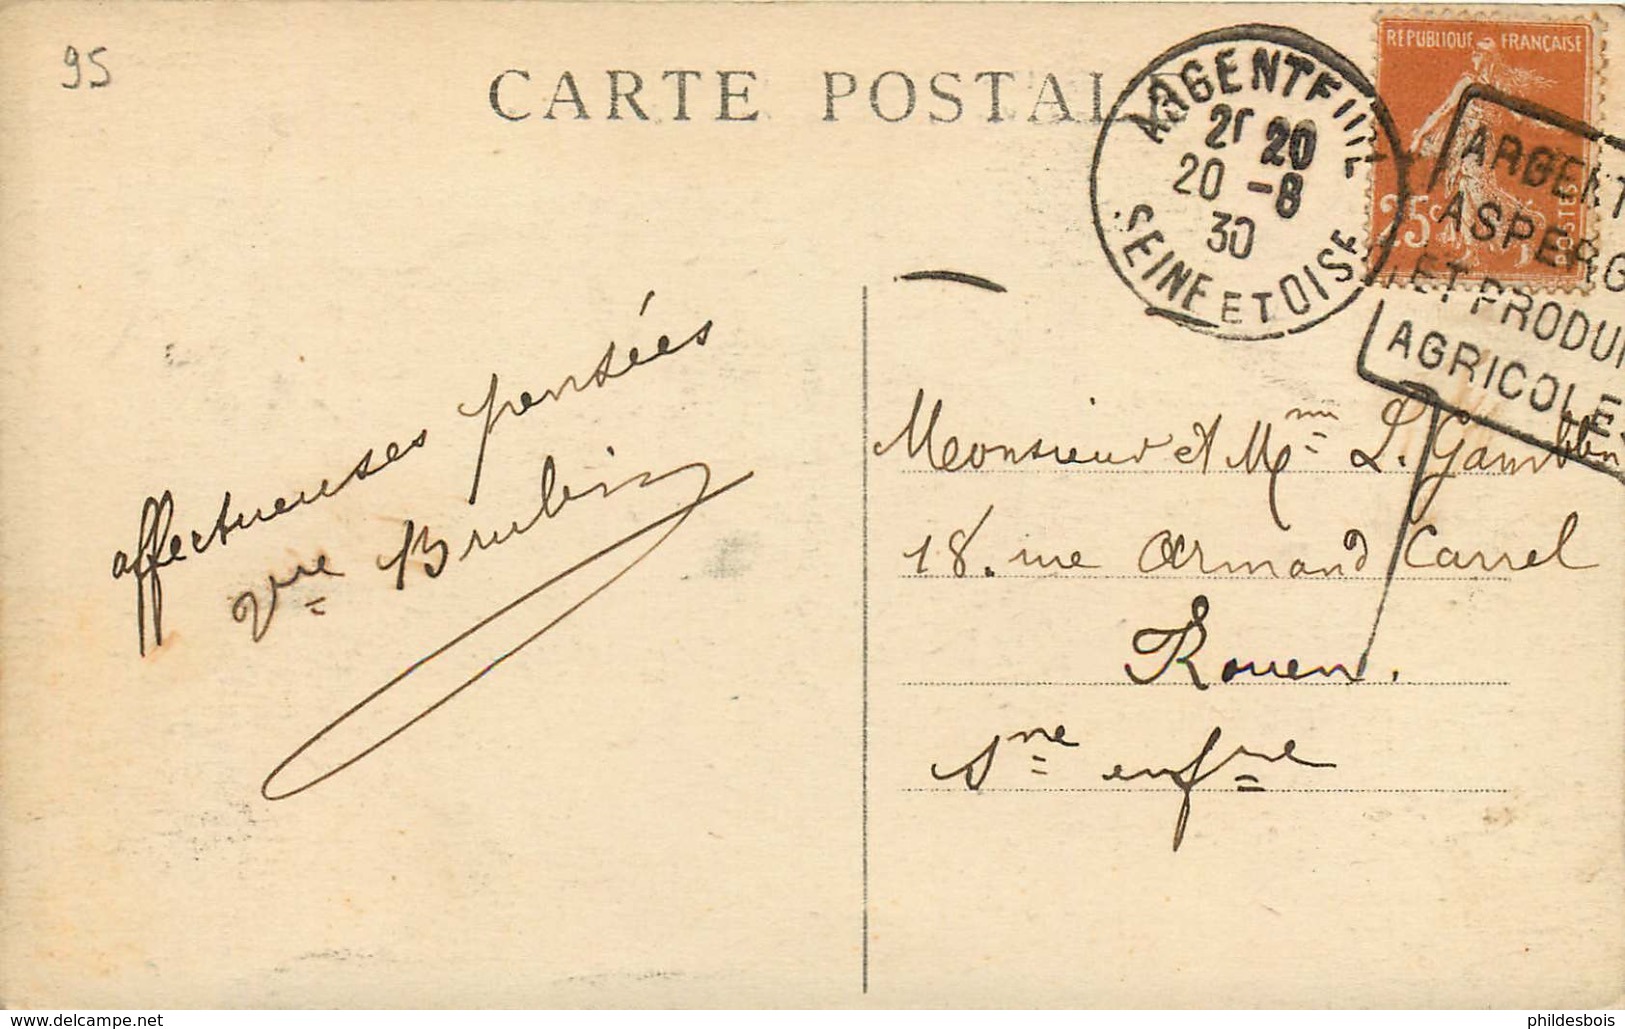 95
CARTE POSTAL
ARGENTEUIL
20
20 -8
30
SEINE ET OISE
REPUBLIQUE FRANÇAISE
25c
POSTES
ARGENT
ASPERG
ET PRODUI
AGRICOLES
affectueuses pensées
Vve
Monsieur et Mme L. Gamblin
18. rue Armand Carrel
Rouen.
Sne infre
delcampe.net
phildesbois